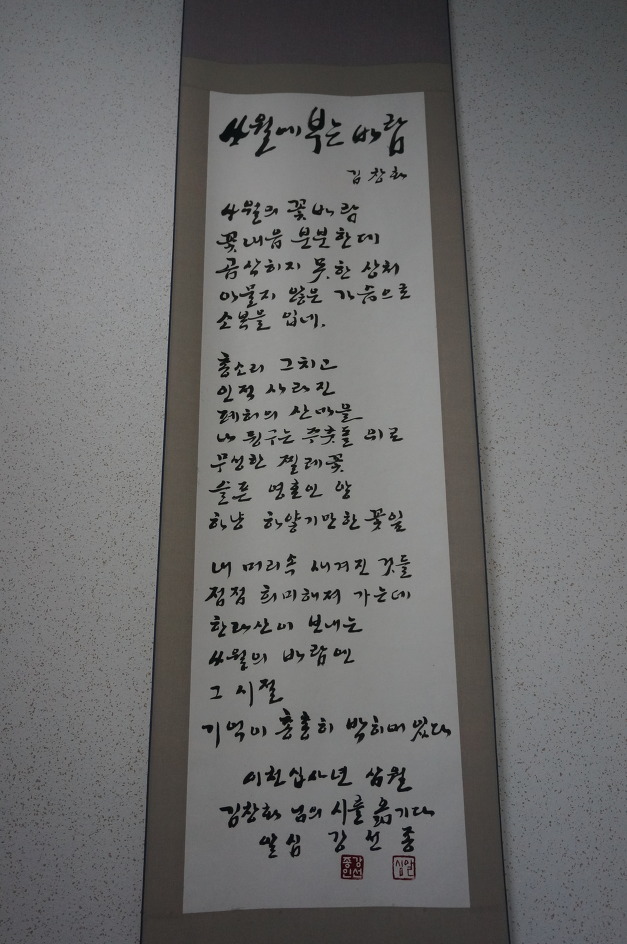 사월에 부는 바람
김창화
사월의 꽃바람
꽃내음 분분한데
곰삭히지 못한 상처
아물지 않은 가슴으로
소복을 입네.
총소리 그치고
인적 사라진
폐허의 산마을
나뒹구는 주춧돌 위로
무성한 찔레꽃
슬픈 영혼인 양
하냥 하얗기만한 꽃잎
내 머리속 새겨진 것들
점점 희미해져 가는데
한라산이 보내는
사월의 바람엔
그 시절
기억이 총총히 박히어 있다
이천십사년 삼월
김창화 님의 시를 옮기다
알심 강선종
강선
종인
알
심